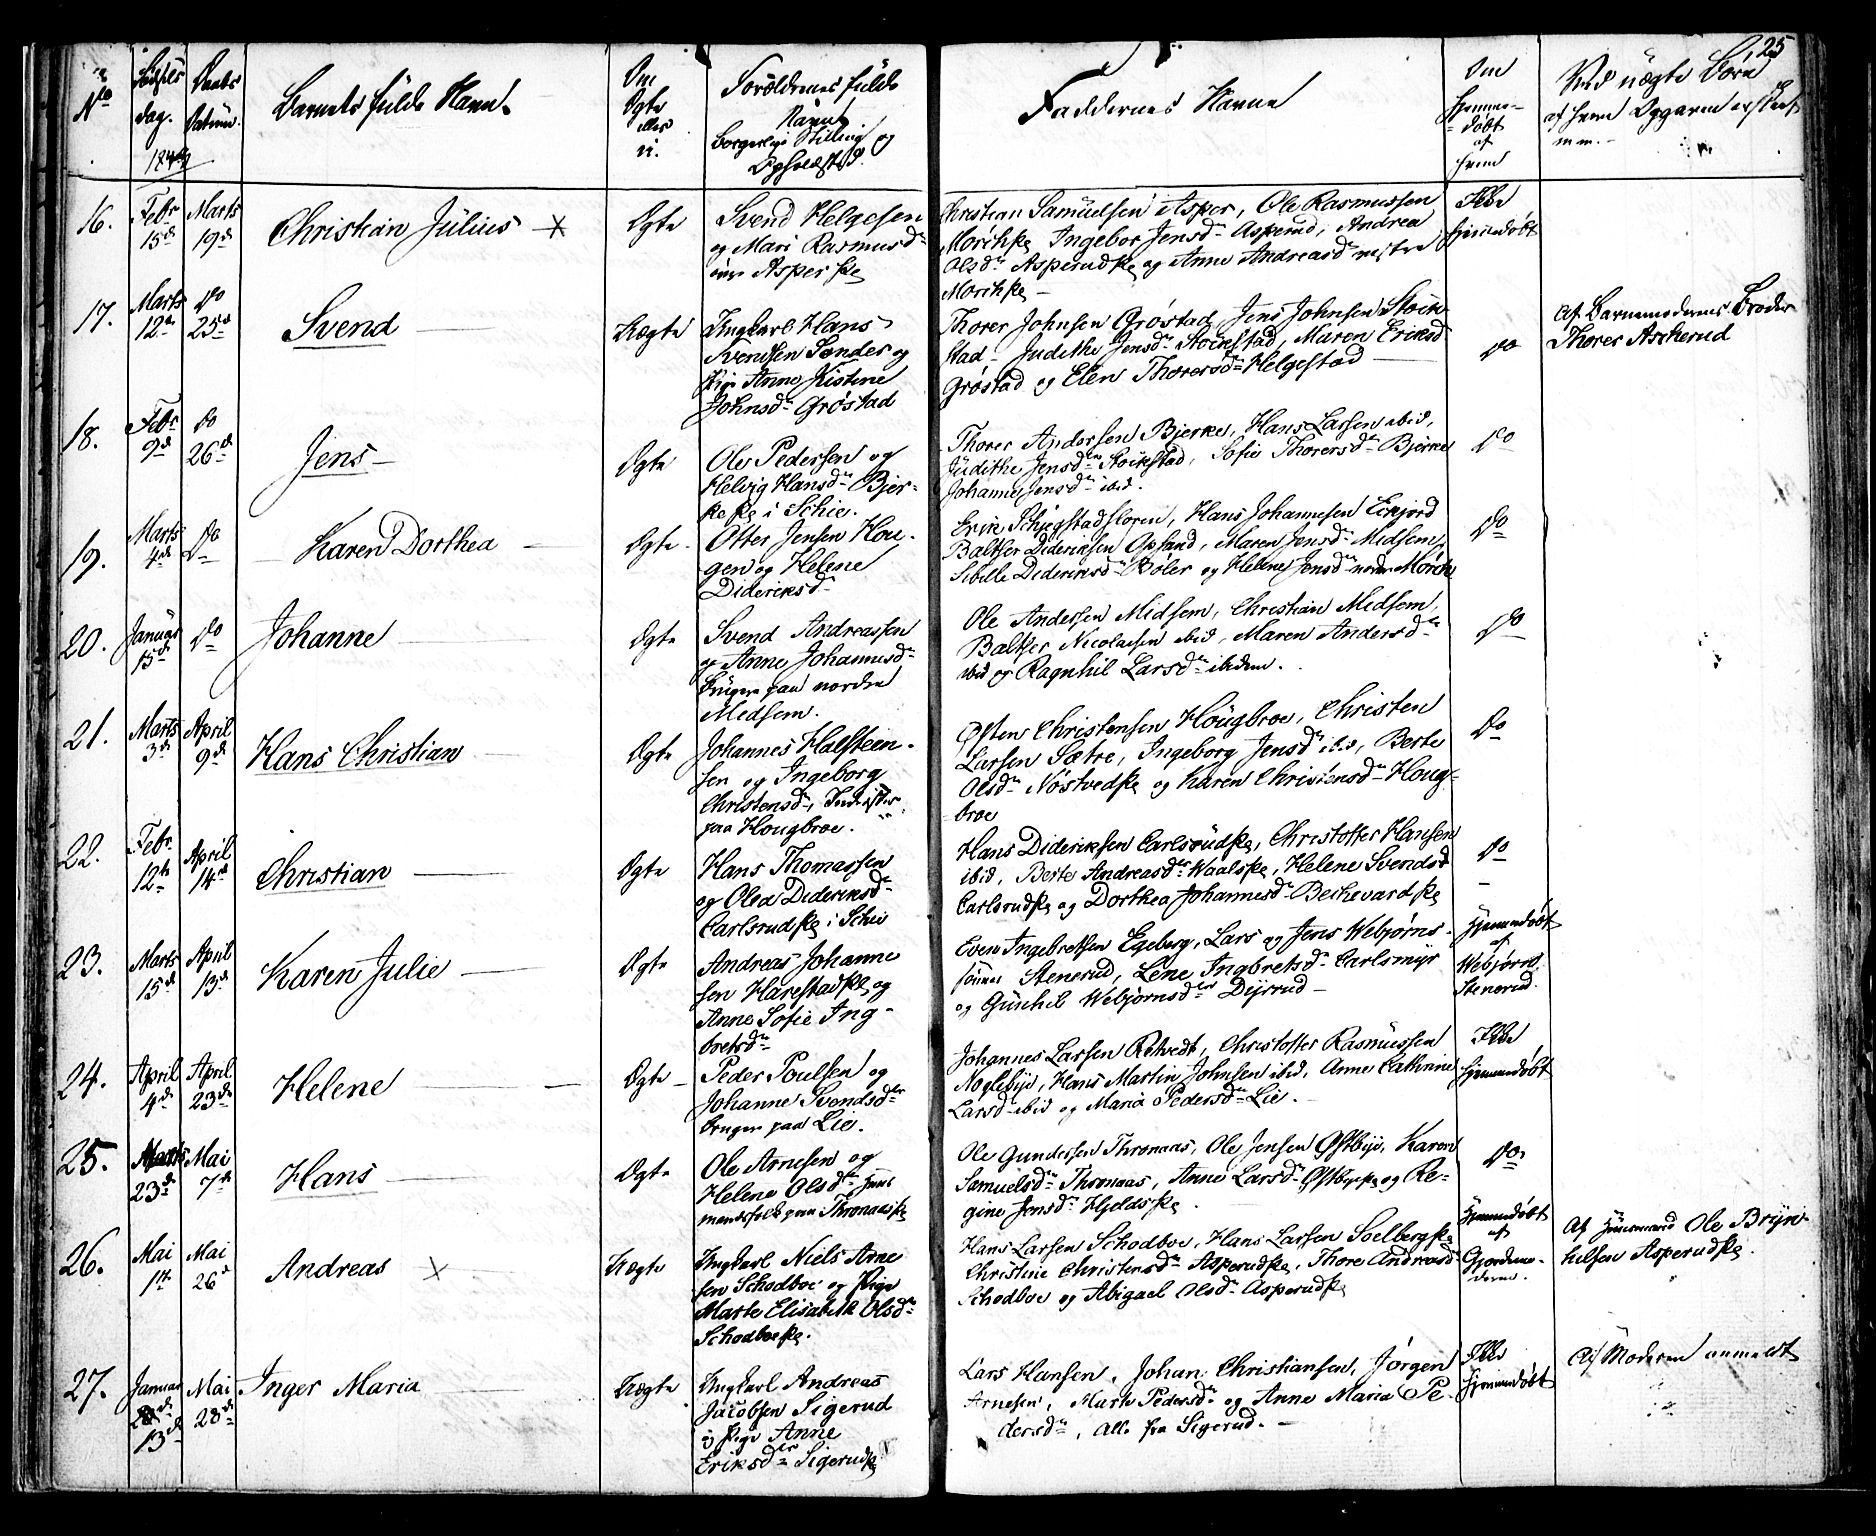 25
No
Fødsels
dag.
Daabs
Datum.
Barnets fulde Navn.
Om
Ægte
eller
ei.
Forældrenes fulde
Navn,
borgerlige Stilling og
Opholdsted.
Faddernes Navne
Om
hjemme-
døbt
af
hvem
Ved uægte Børn
af hvem Opgaven er skeet
m m.
16.
Febr
15de
Marts
19de
Christian Julius
Ægte
Svend Helgesen
og Mari Rasmusdr
Asper
Christian Samuelsen Asper, Ole Rasmussen
Mørk, Ingebor Jensdr Asperud, Andrea
Olsdr Asperud og Anne Andreasdr
Mørk
Ikke
hjemmedøbt
17.
Marts
12te
do
25de
Svend
Uægte
Ungkarl Hans
Svendsen Sander og
Pige Anne Kistene
Johnsdr Grøstad
Thorer Johnsen Grøstad, Jens Johnsen Stoik
stad, Judithe Jensdr Stoikstad, Maren Eriksd
Grøstad og Elen Thorersdr Helgestad
do
Af Barnemoderens Broder
Thorer Askerud
18.
Febr
9de
do
26de
Jens
Ægte
Ole Pedersen og
Helvig Hansdr Bjer-
ke i Schie.
Thorer Andersen Bjerke, Hans Larsen ibid,
Judithe Jensdr Stoikstad, Sofie Thorersdr Bjerke
Johanne Jensdr ibid.
do
19.
Marts
4de
do
Karen Dorthea
Ægte
Otter Jensen Hou-
gen og Helene
Dideriksdr
Erik Schjegstadfloren, Hans Johannesen Eikjord
Baltser Dideriksen Opsand, Maren Jensdr Midsem,
Sibille Dideriksdr Bøler og Helene Jensdr Mørk
do
20.
Januar
15de
do
Johanne
Ægte
Svend Andreassen
og Anne Johannesdr
Bruger paa nordre
Midsem.
Ole Andersen Midsem, Christian Midsem,
Baltser Nicolaisen ibid, Maren Andersdr
ibid og Ragnhil Larsdr ibidem.
do
21.
Marts
3de
April
9de
Hans Christian
Ægte
Johannes Halsteen-
sen og Ingeborg
Christensdr, Inderster
paa Hougbroe.
Østen Christensen Hougbroe, Christen
Larsen Sætre, Ingeborg Jensdr ibid, Berte
Olsdr Nøstved og Karen Christensdr Houg-
broe
do
22.
Febr
12te
April
14de
Christian
Ægte
Hans Thomassen
og Olea Dideriksdr
Carlsrud i Schie
Hans Dideriksen Carlsrud, Christoffer Hansen
ibid, Berte Andreasdr Waals, Helene Svendsd
Carlsrud og Dorthea Johannesdr Bechevard
do
23.
Marts
15de
April
13de
Karen Julie
Ægte
Andreas Johanne
sen Harestad og
Anne Sofie Ing-
bretsdr
Even Ingebretsen Egeberg, Lars og Jens Webjørns-
sønner Stenerud, Lene Ingbretsdr Carlsmyr
og Gunhil Webjørnsdr Dysrud
Hjemmedøbt
af
Webjørn
Stenerud.
24.
April
4de
April
23de
Helene
Ægte
Peder Poulsen og
Johanne Svendsdr
bruger paa Lie.
Johannes Larsen Retvedt, Christoffer Rasmussen
Noglebye, Hans Martin Johnsen ibid, Anne Cathrine
Larsd ibid og Maria Pedersdr Lie.
Ikke
hjemmedøbt
25.
Marts
23de
Mai
7de
Hans
Ægte
Ole Arnesen og
Helene Olsdr Huus
mandsfolk paa Thronaas
Ole Gundersen Thronaas, Ole Jensen Østbye, Karen
Samuelsdr Thronaas, Anne Larsdr Østbye og Re-
gine Jensdr Hjelds
do
26.
Mai
1ste
Mai
26de
Andreas
Uægte
Ungkarl Niels Arne
sen Schodboe og Pige
Marte Elisabeth Olsdr
Schodboe.
Hans Larsen Schodboe, Hans Larsen Soelberg
Christine Christensdr Asperud, Thore Andreasd
Schodboe og Abigael Olsdr Asperud
Hjemmedøbt
af
Gjordemo-
deren.
Af Huusmand Ole Bryn-
hilsen Asperud.
27.
Januar
13de
Mai
28de
Inger Maria
Uægte
Ungkarl Andreas
Jacobsen Sigerud
og Pige Anne
Eriksdr Sigerud
Lars Hansen, Johan Christiansen, Jørgen
Arnesen, Mart Pedersdr og Anne Maria Pe-
dersdr, alle fra Sigerud.
Ikke
hjemmedøbt
Af Moderen anmeldt